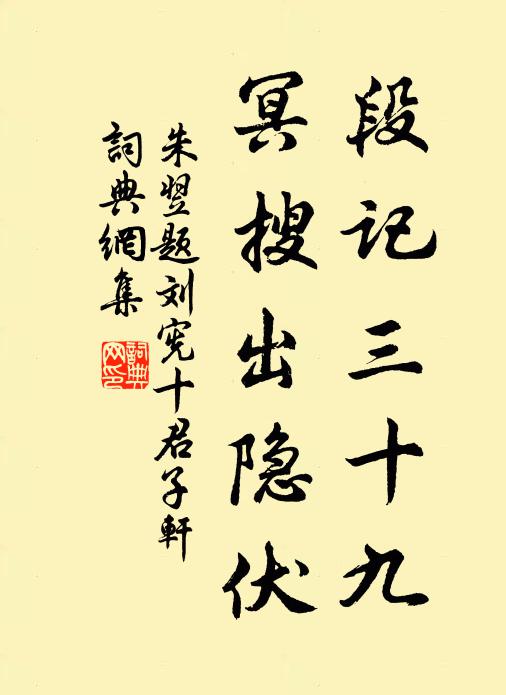 段记三十九
冥搜出隐伏
朱翌题刘宪十君子軒
詞典網集
詞典
网印